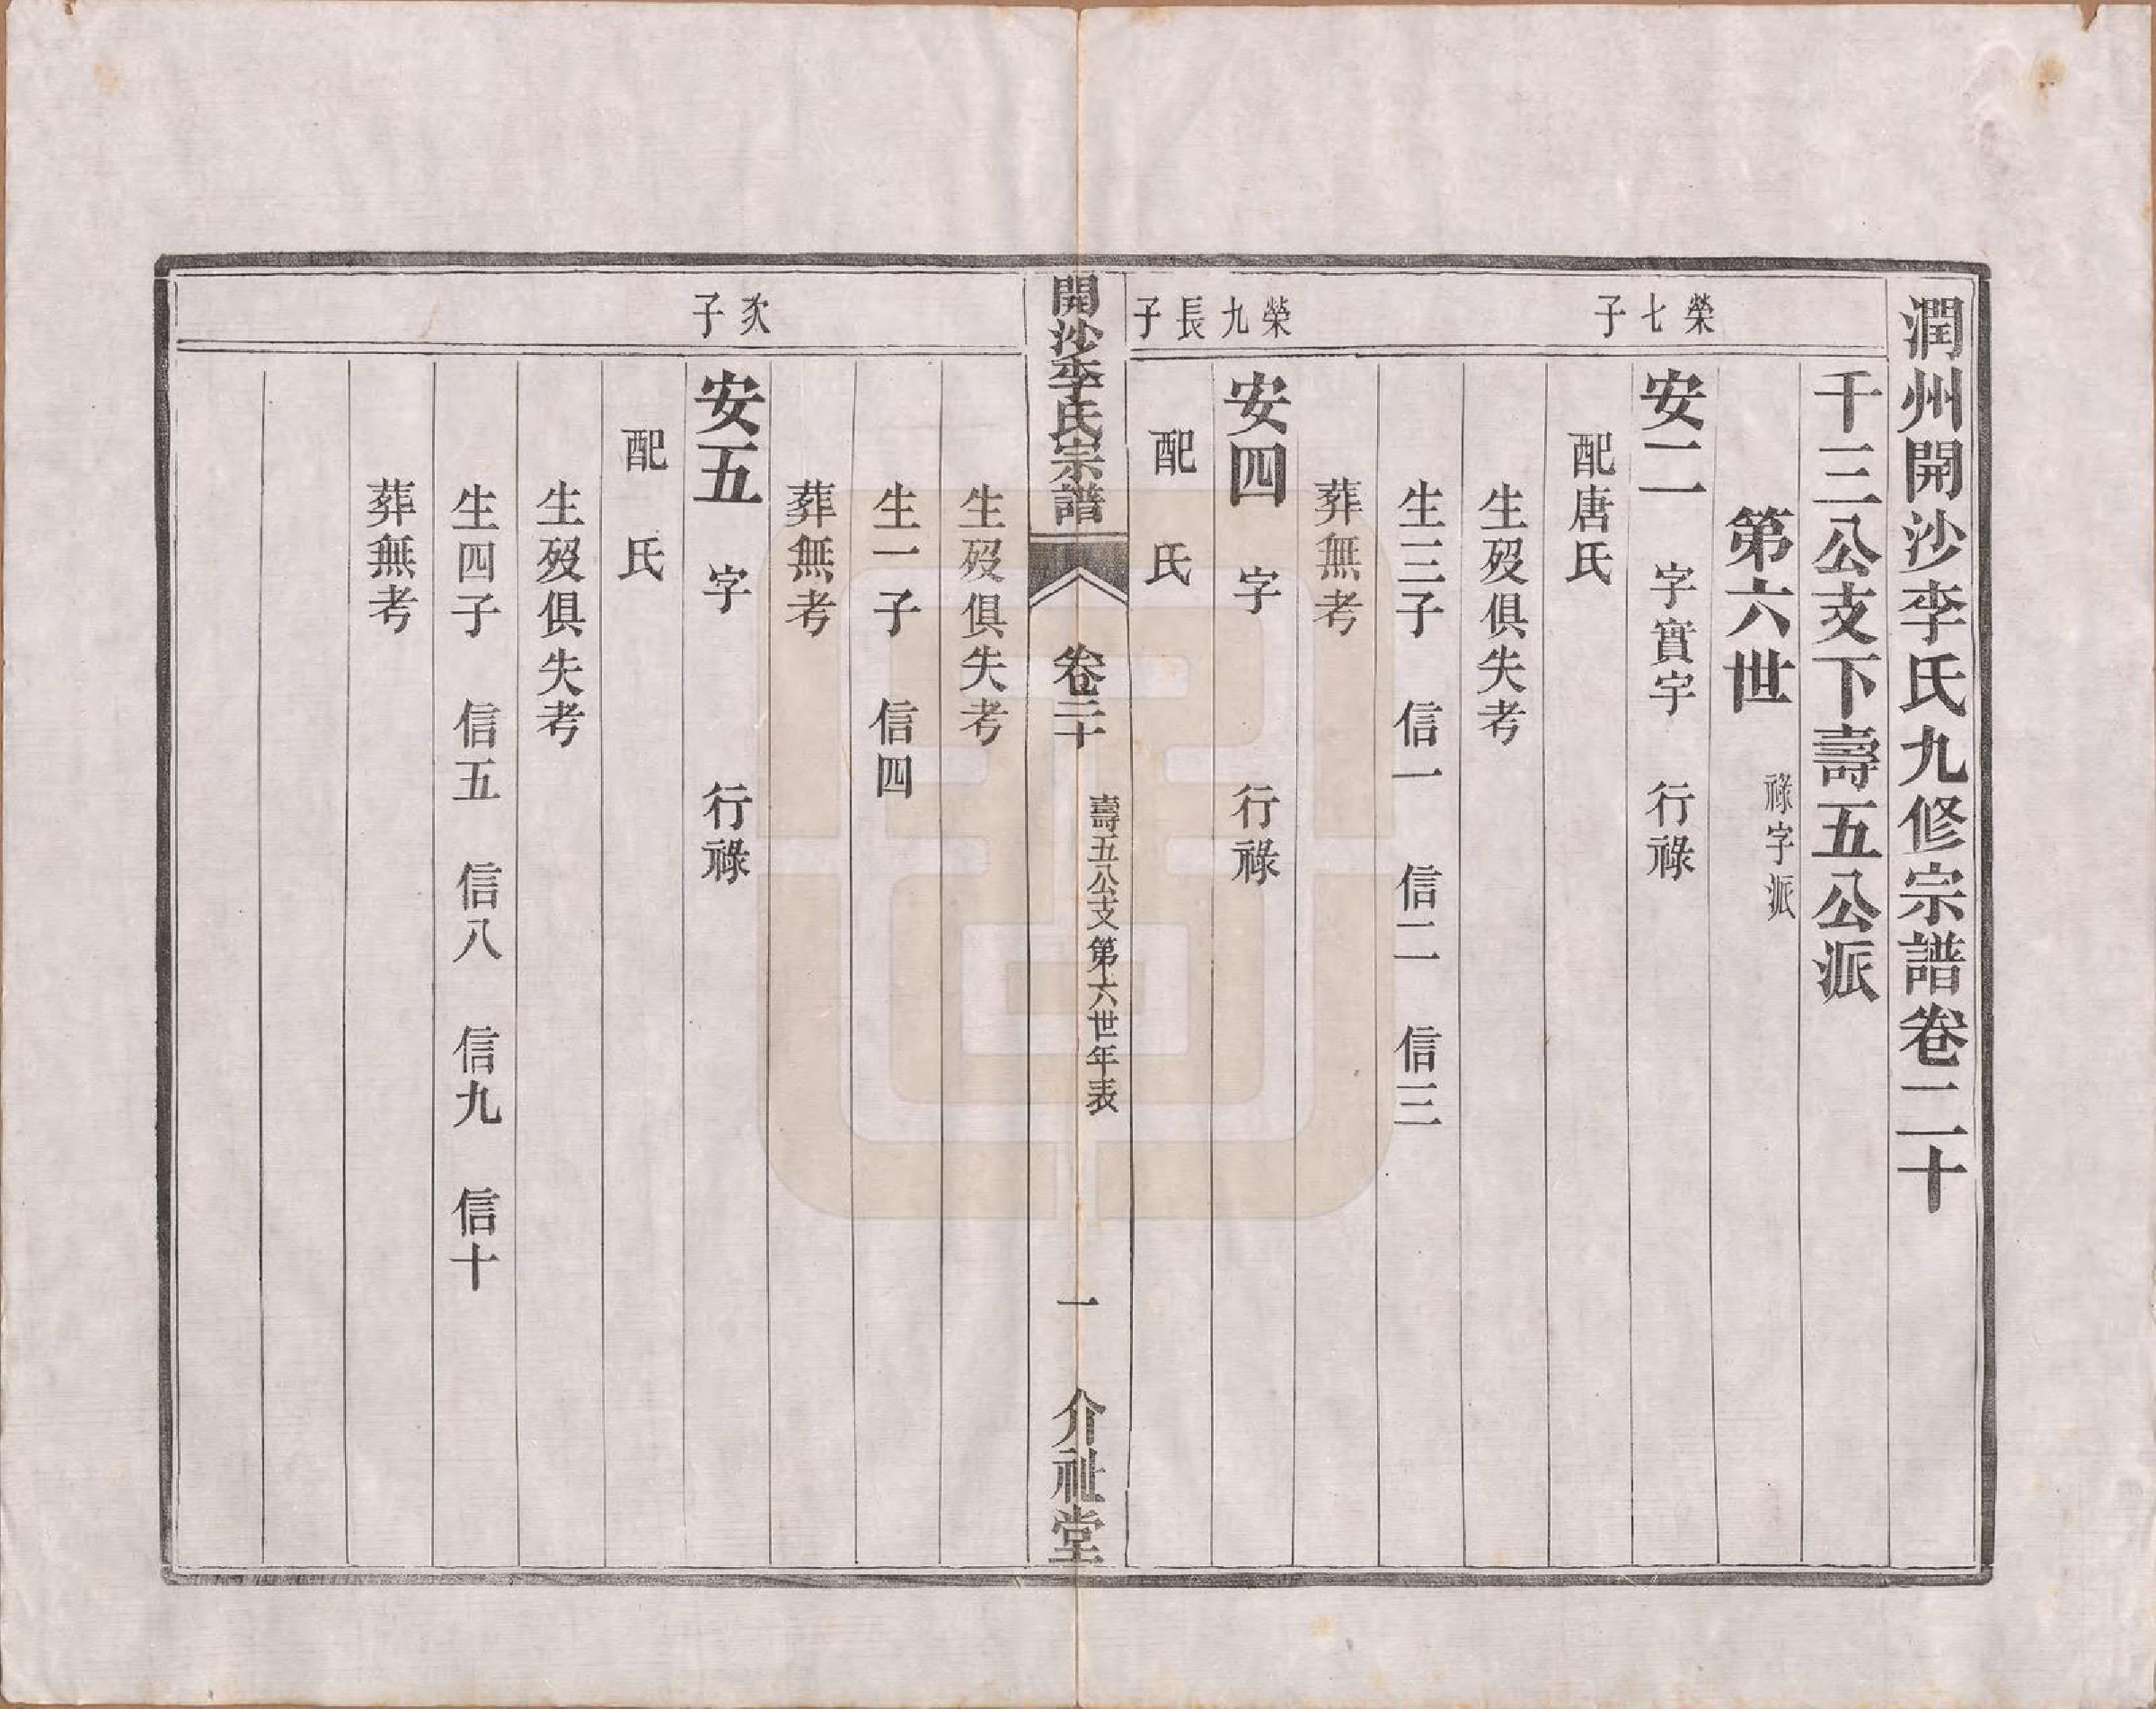 潤州開沙李氏九修宗譜卷二十
千三公支下壽五公派
第六世 祿字派
榮七子
安二 字實宇 行祿
配唐氏
生歿俱失考
生三子 信一 信二 信三
葬無考
榮九長子
安四 字 行祿
配 氏
開沙李氏宗譜 卷二十 壽五公支第六世年表 一 介祉堂
生歿俱失考
生一子 信四
葬無考
次子
安五 字 行祿
配 氏
生歿俱失考
生四子 信五 信八 信九 信十
葬無考